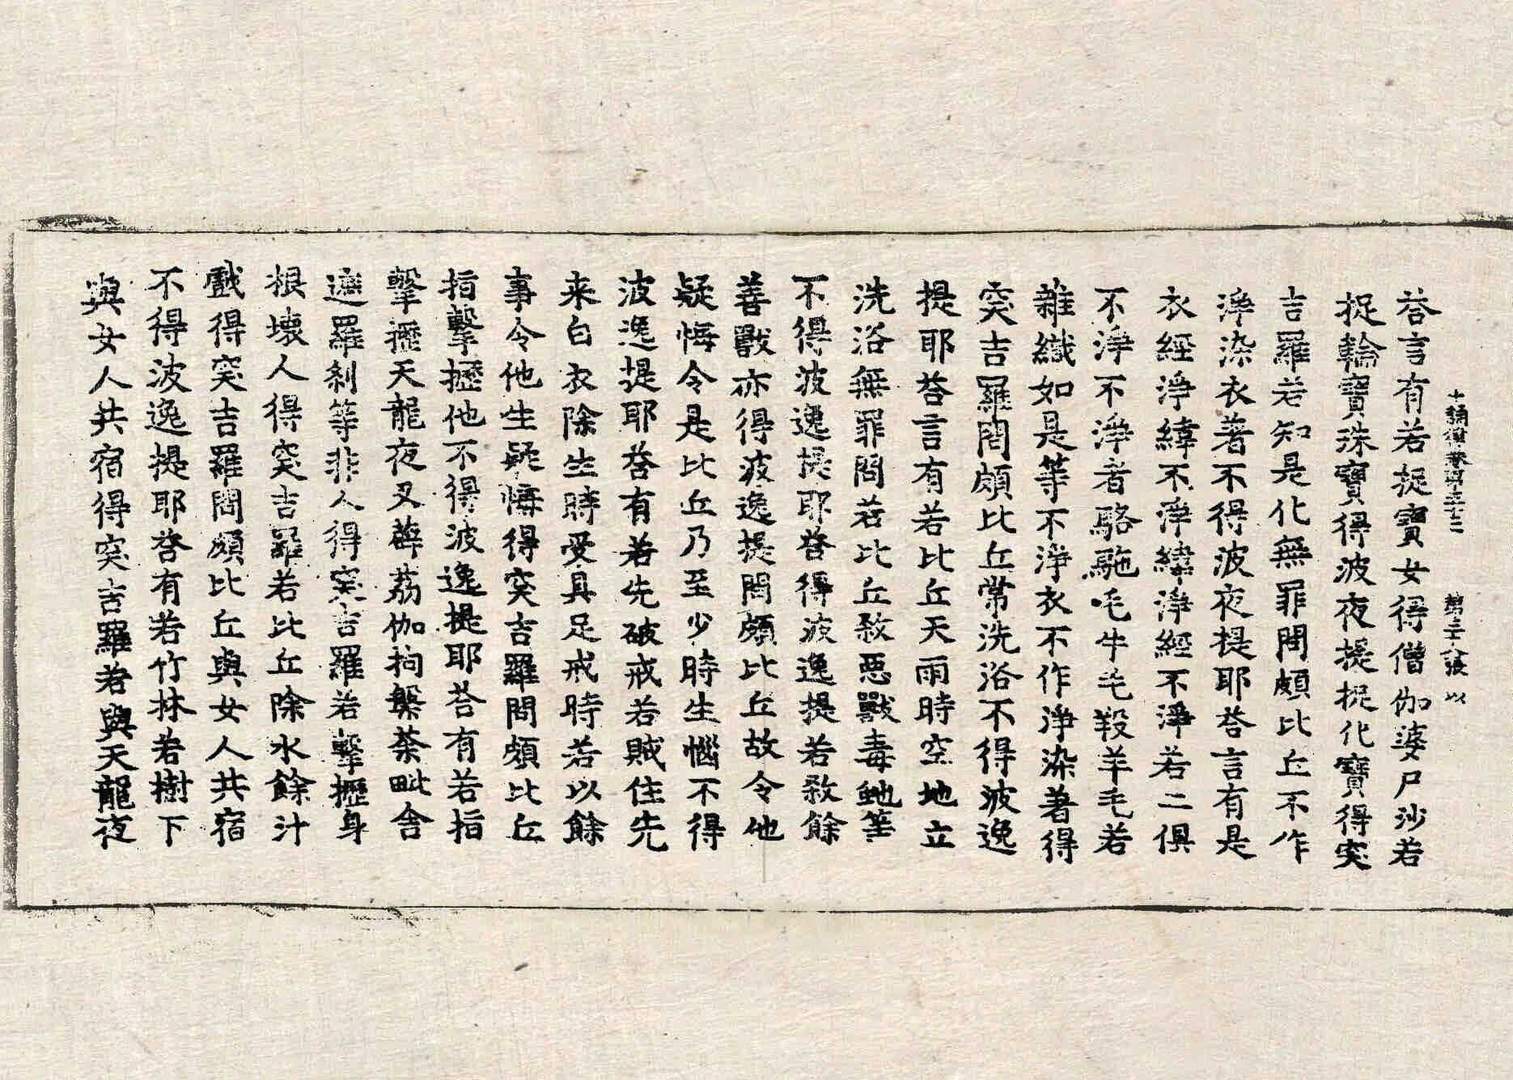 十誦律卷第五十三 第三十八張 以
荅言有若捉寶女得僧伽婆尸沙若
捉輪寶珠寶得波夜提捉化寶得突
吉羅若知是化無罪問頗比丘不作
淨染衣著不得波夜提耶荅言有是
衣經淨緯不淨緯淨經不淨若二俱
不淨不淨者駱駞毛牛毛羖羊毛若
雜織如是等不淨衣不作淨染著得
突吉羅問頗比丘常洗浴不得波逸
提耶荅言有若比丘天雨時空地立
洗浴無罪問若比丘殺惡獸毒虵等
不得波逸提耶荅得波逸提若殺餘
善獸亦得波逸提問頗比丘故令他
疑悔令是比丘乃至少時生惱不得
波逸提耶荅有若先破戒若賊住先
来白衣除生時受具足戒時若以餘
事令他生疑悔得突吉羅問頗比丘
指擊攊他不得波逸提耶荅有若指
擊攊天龍夜叉薜荔伽拘槃荼毗舍
遮羅刹等非人得突吉羅若擊攊身
根壞人得突吉羅若比丘除水餘汁
戲得突吉羅問頗比丘與女人共宿
不得波逸提耶荅有若竹林若樹下
與女人共宿得突吉羅若與天龍夜